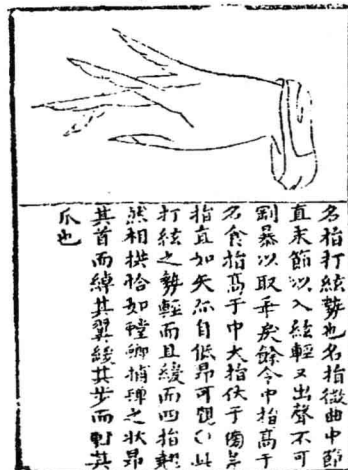 名指打絃勢也名指微曲中節
直末節以入絃輕又出聲不可
剛暴以取乖戾餘令中指高于
名食指高于中大指伏于
指直如矢而自低昂可觀
打絃之勢輕而且緩而四指
然相拱恰如螳螂捕蟬之狀昂
其首而綽其翼緩其步而
爪也